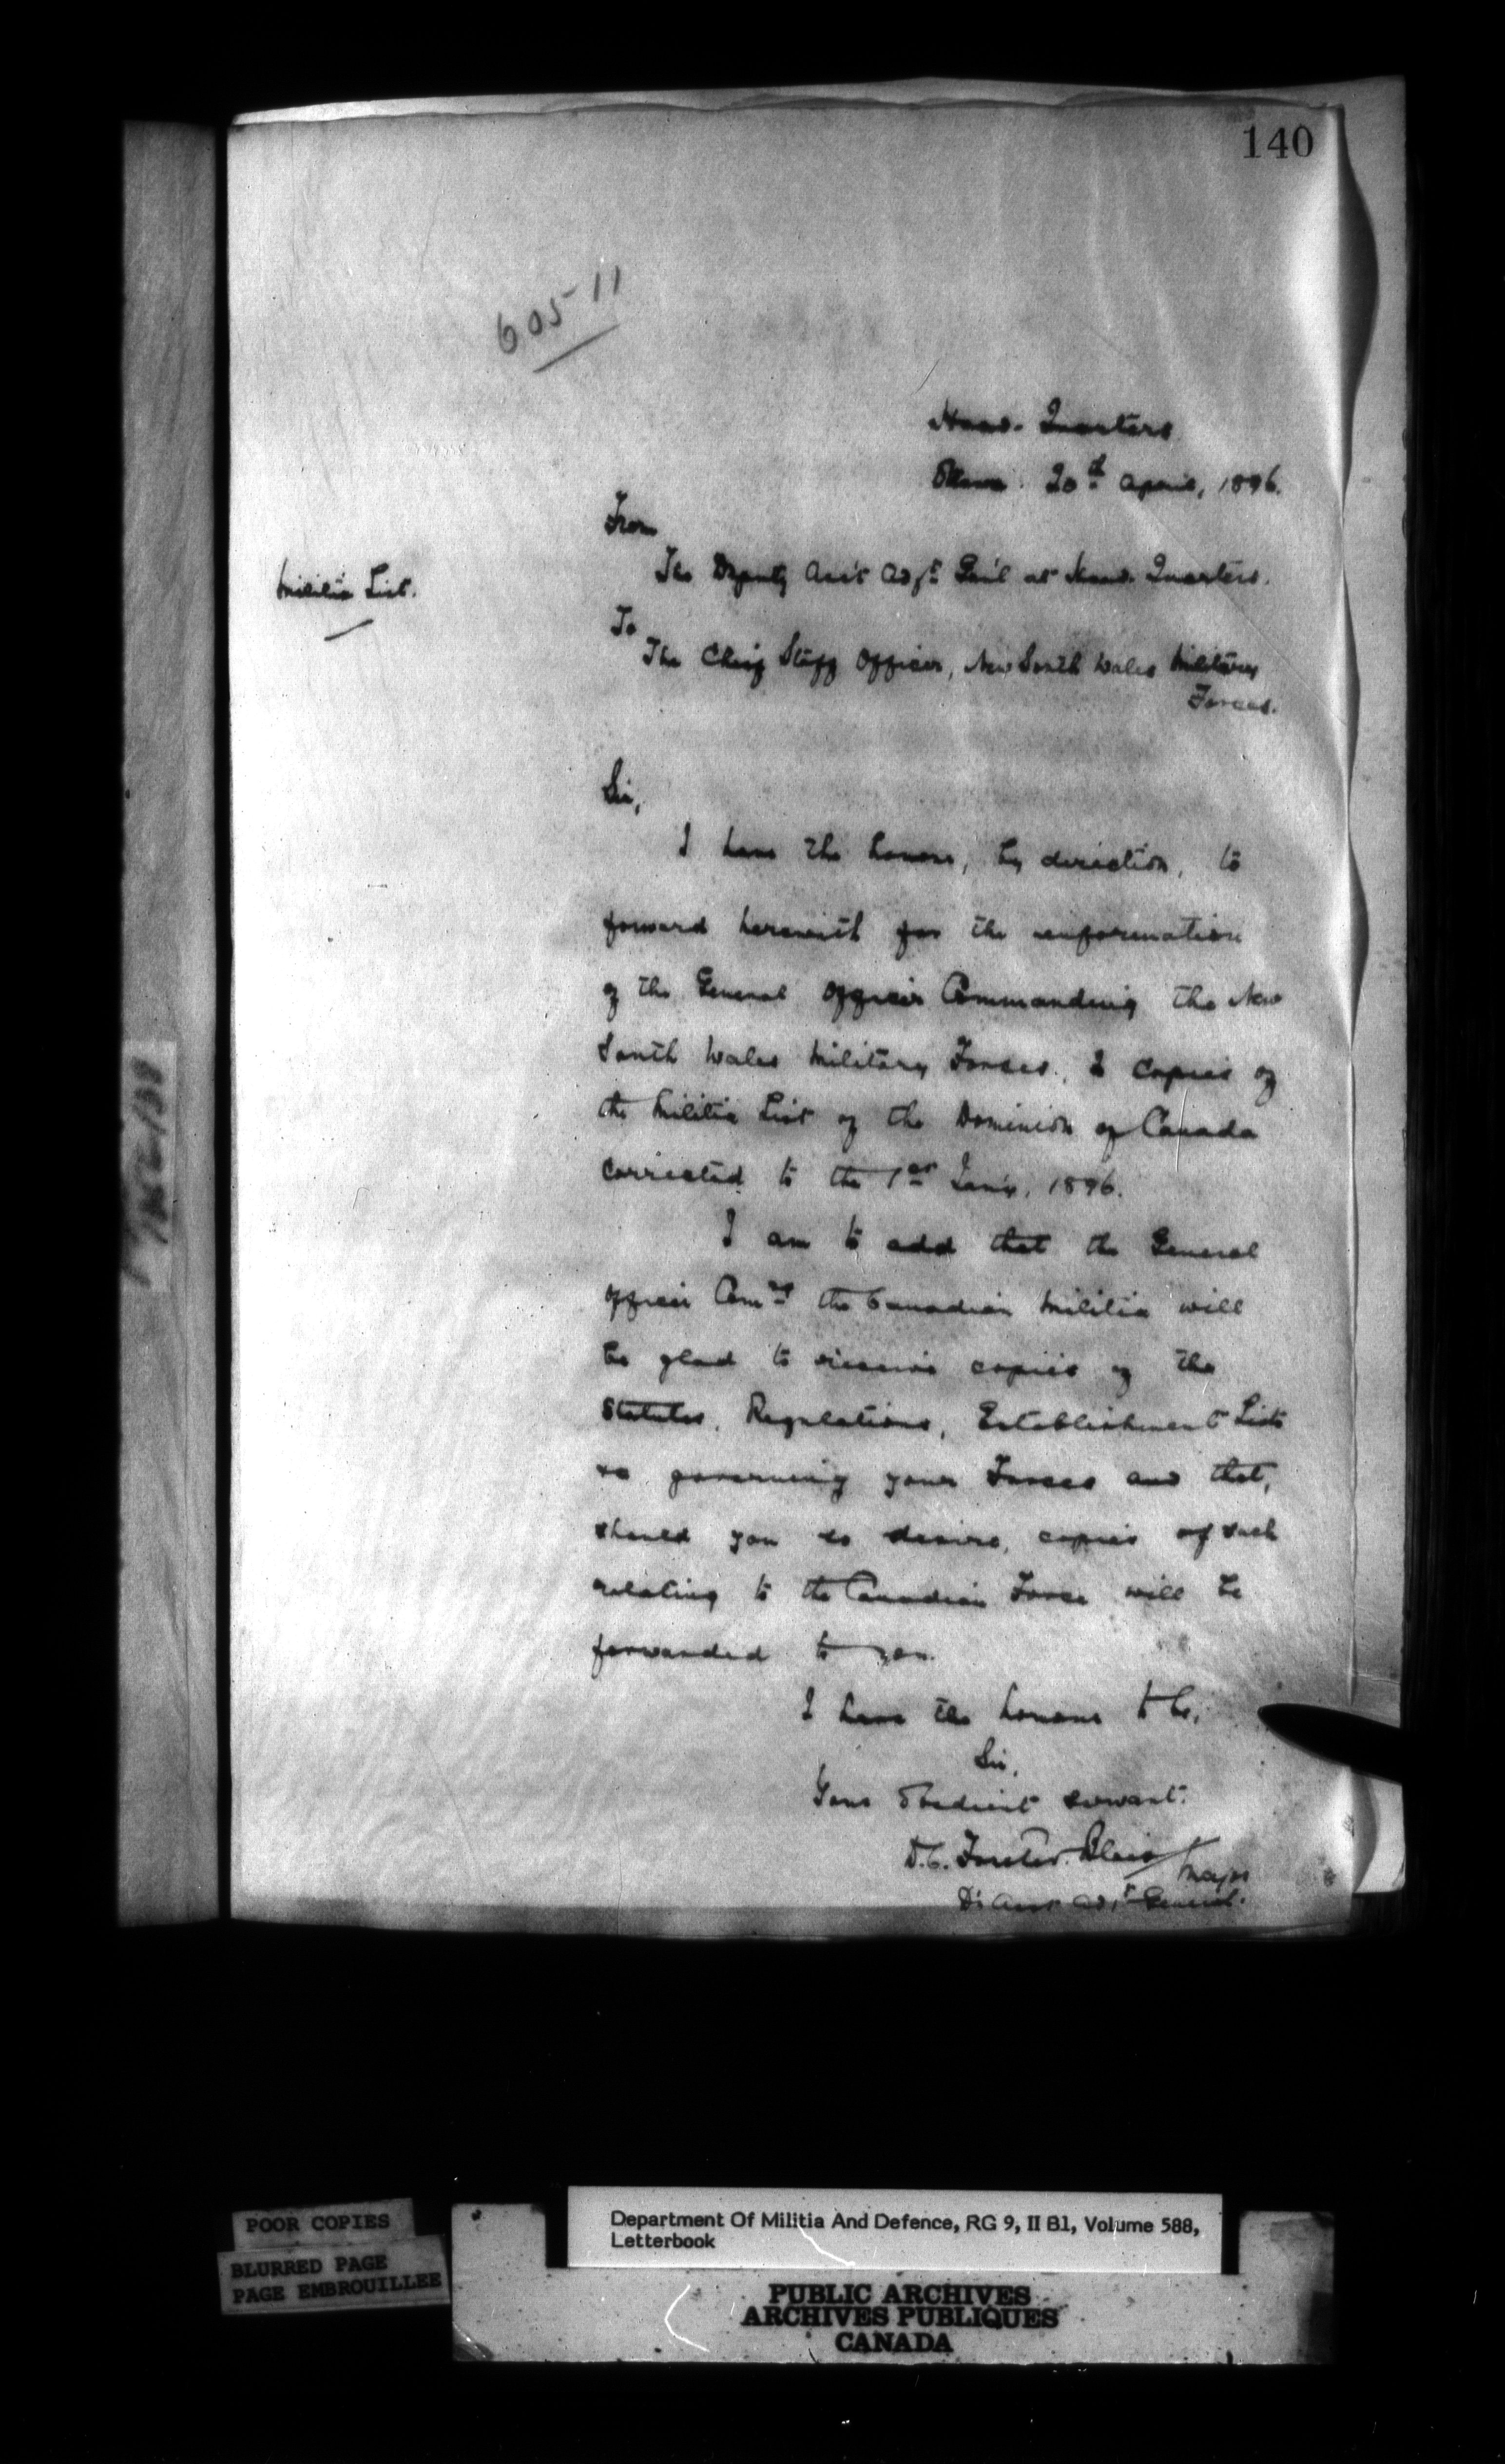 140
605-11
Head-Quarters
Ottawa. 20th April, 1896.
From
The Deputy Ass't Adjt Gen'l at Head-Quarters.
Militia List.
To
The Chief Staff Officer, New South Wales Military
Forces.
Sir,
I have the honour, by direction, to
forward herewith for the information
of the General Officer Commanding the New
South Wales Military Forces, 2 copies of
the Militia List of the Dominion of Canada
corrected to the 1st Jan'y, 1896.
I am to add that the General
Officer Comdg the Canadian Militia will
be glad to receive copies of the
Statutes, Regulations, Establishment Lists
&c governing your Forces and that,
should you so desire, copies of such
relating to the Canadian Force will be
forwarded to you.
I have the honour to be,
Sir,
Your obedient servant.
D.C. Forster Bliss Major
D' Asst Adjt General.
POOR COPIES
BLURRED PAGE
PAGE EMBROUILLEE
Department Of Militia And Defence, RG 9, II B1, Volume 588,
Letterbook
PUBLIC ARCHIVES
ARCHIVES PUBLIQUES
CANADA